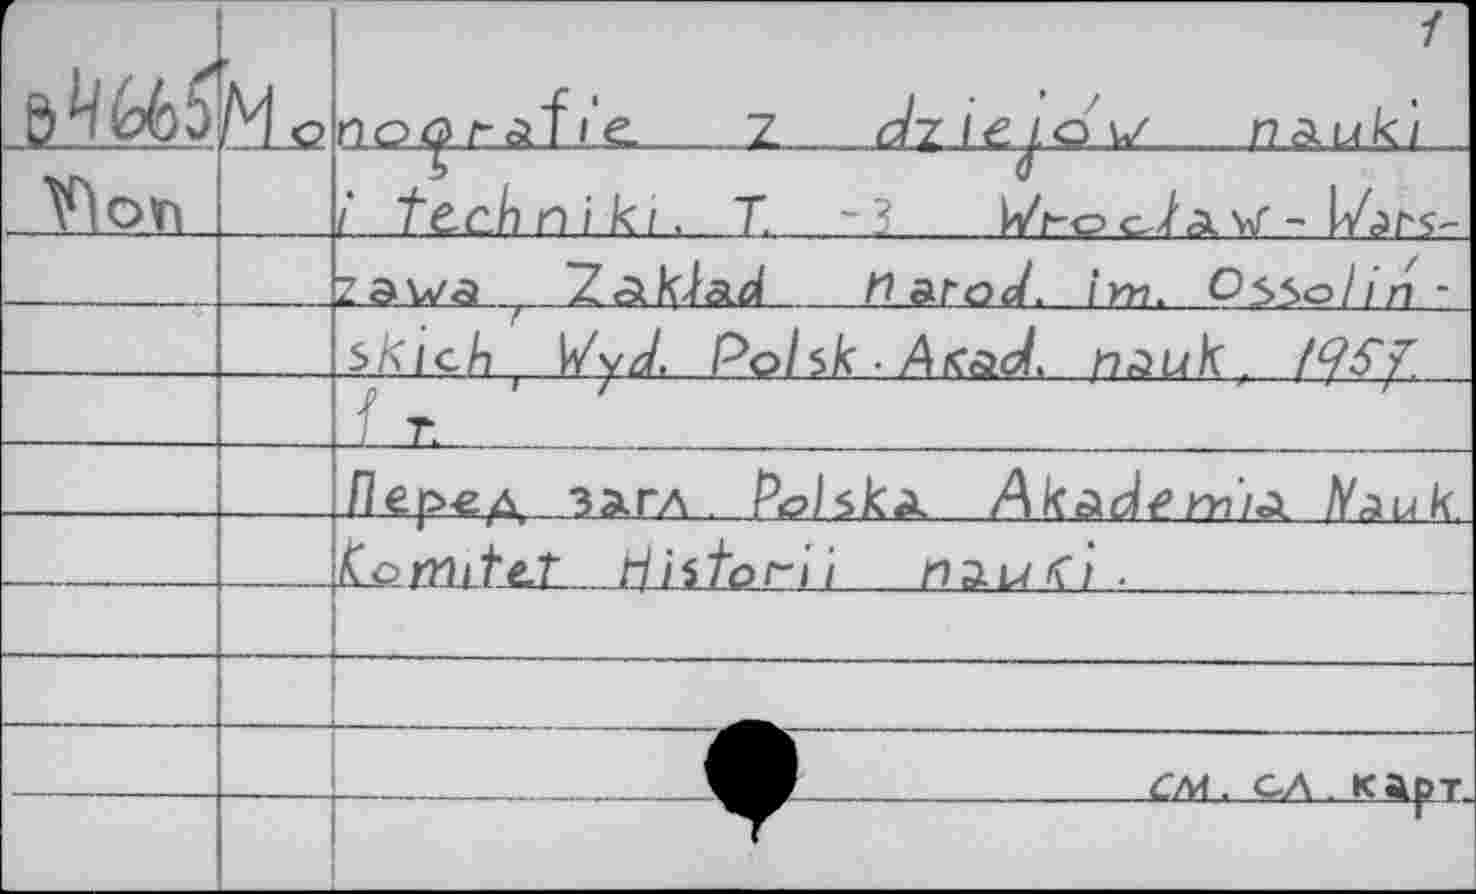 1
в46665 Monografie z dziejów nauki
Mon i techniki. T. -3 Wrocław-Wars-
zawa, Zakład Narod. im. Ossoliń-
skich, Wyd. Polsk. Akad. nauk, 1957.
1 т.
Перед загл. Polska Akademia Nauk.
Komitet Historii nauki.
см. сл. карт.